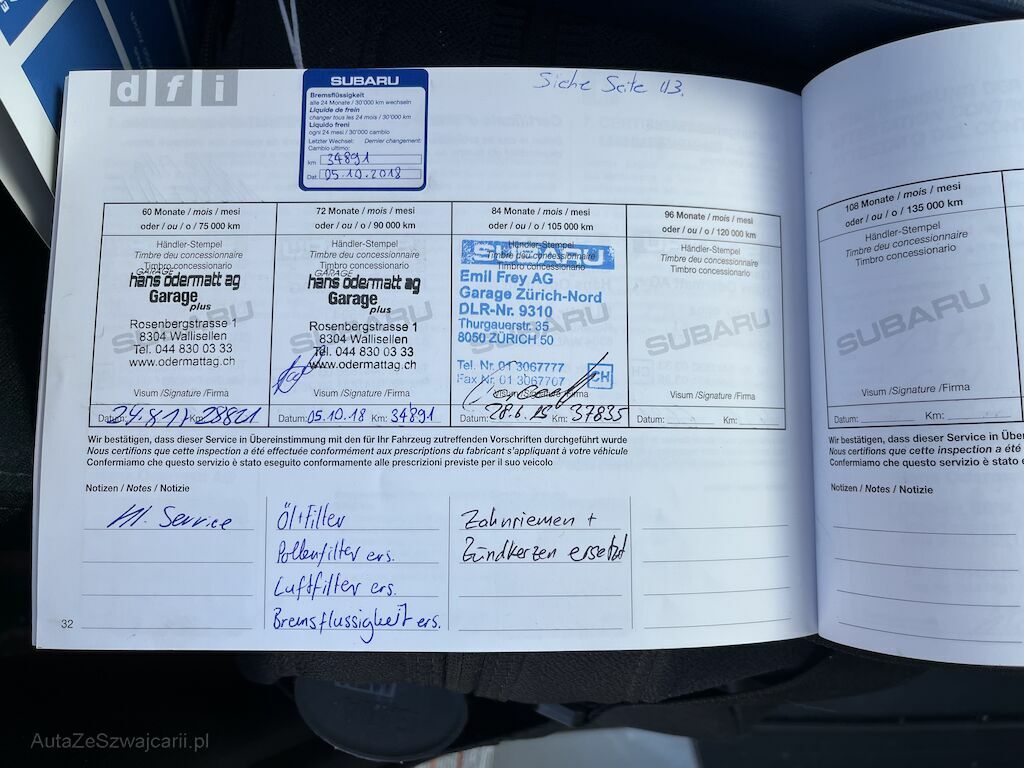 dfi
SUBARU
Bremsflüssigkeit
alle 24 Monate / 30'000 km wechseln
Liquide de frein
changer tous les 24 mois / 30'000 km
Liquido freni
ogni 24 mesi / 30'000 cambio
Letzter Wechsel: Dernier changement:
Cambio ultimo:
km 34891
Dat. 05.10.2018
Siehe Seite 43.
60 Monate / mois / mesi
oder / ou / o / 75 000 km
Händler-Stempel
Timbre deu concessionnaire
Timbro concessionario
GARAGE
hans odermatt ag
Garage
plus
Rosenbergstrasse 1
8304 Wallisellen
Tel. 044 830 03 33
www.odermattag.ch
SUBARU
Visum /Signature /Firma
Datum: 24.8.17 Km: 28821
72 Monate / mois / mesi
oder / ou / o / 90 000 km
Händler-Stempel
Timbre deu concessionnaire
Timbro concessionario
GARAGE
hans odermatt ag
Garage
plus
Rosenbergstrasse 1
8304 Wallisellen
Tel. 044 830 03 33
www.odermattag.ch
SUBARU
Visum /Signature /Firma
Datum: 05.10.18 Km: 34891
84 Monate / mois / mesi
oder / ou / o / 105 000 km
Händler-Stempel
Timbre deu concessionnaire
Timbro concessionario
SUBARU
Emil Frey AG
Garage Zürich-Nord
DLR-Nr. 9310
Thurgauerstr. 35
8050 ZÜRICH 50
Tel. Nr. 01 3067777
Fax Nr. 01 3067707
CH
SUBARU
Visum /Signature /Firma
Datum: 28.6.19 Km: 37835
96 Monate / mois / mesi
oder / ou / o / 120 000 km
Händler-Stempel
Timbre deu concessionnaire
Timbro concessionario
SUBARU
Visum /Signature /Firma
Datum: Km:
Wir bestätigen, dass dieser Service in Übereinstimmung mit den für Ihr Fahrzeug zutreffenden Vorschriften durchgeführt wurde
Nous certifions que cette inspection a été effectuée conformément aux prescriptions du fabricant s'appliquant à votre véhicule
Confermiamo che questo servizio è stato eseguito conformamente alle prescrizioni previste per il suo veicolo
Notizen / Notes / Notizie
Kl. Service
Öl+Filter
Pollenfilter ers.
Luftfilter ers.
Bremsflüssigkeit ers.
Zahnriemen +
Zündkerzen ersetzt
32
108 Monate / mois / mesi
oder / ou / o / 135 000 km
Händler-Stempel
Timbre deu concessionnaire
Timbro concessionario
SUBARU
Visum /Signature /Firma
Datum: Km:
Wir bestätigen, dass dieser Service in Über
Nous certifions que cette inspection a été e
Confermiamo che questo servizio è stato e
Notizen / Notes / Notizie
AutaZeSzwajcarii.pl